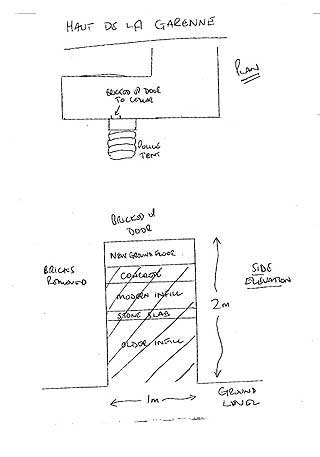 HAUT DS LA GARENNE
PLAN
BRICKED UP DOOR
TO CELLAR
POLICE
TENT
BRICKED UP
DOOR
NEW GROUND FLOOR
CONCRETE
MODERN INFILL
STONE SLAB
OLDER INFILL
BRICKS
REMOVED
SIDE
ELEVATION
2m
1m
GROUND
LEVEL